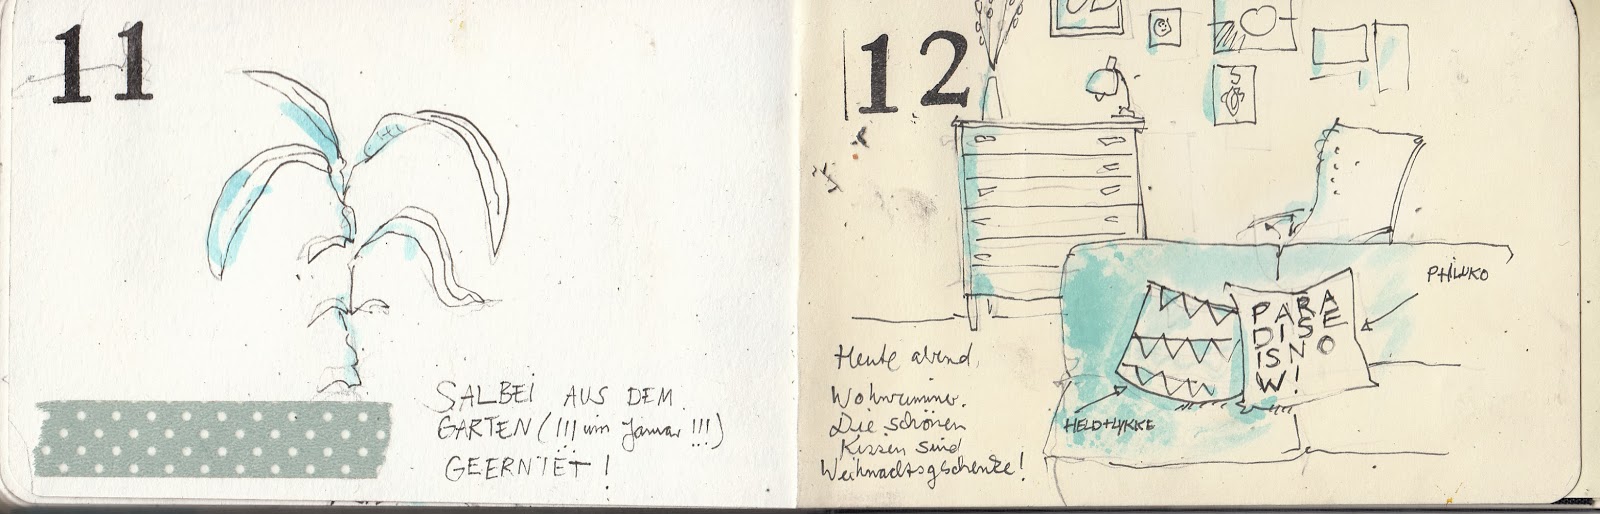 11
SALBEI AUS DEM
GARTEN (!!! im Januar !!!)
GEERNTET!
12
PHILUKO
PARA
DISE
ISNO
W!
HELD+LYKKE
Heute abend,
Wohnzimmer.
Die schönen
Kissen sind
Weihnachtsgschenke!